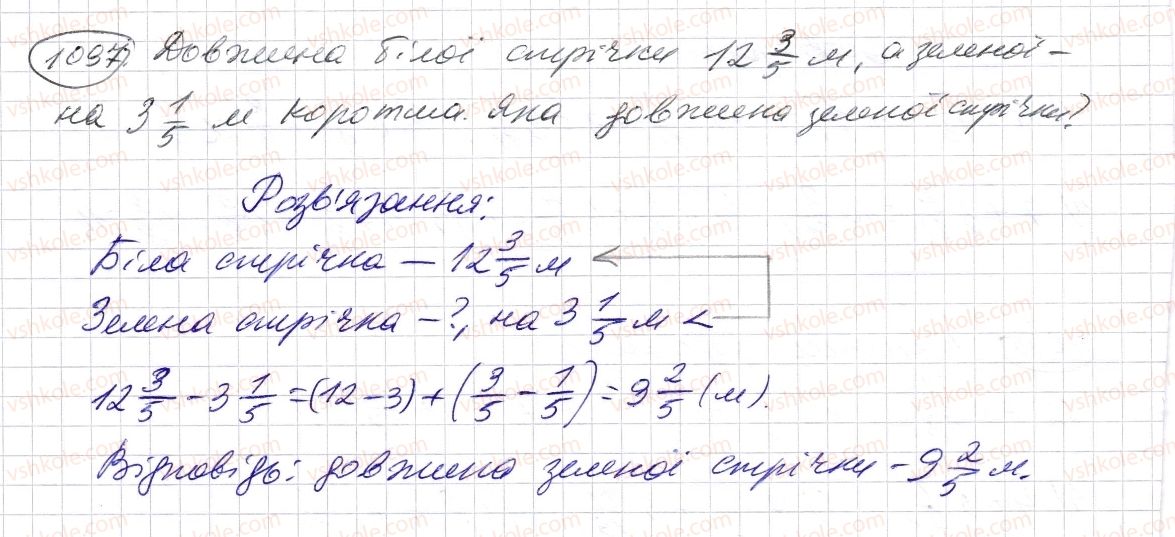 1097. Довжина білої стрічки 12 3/5 м, а зеленої –
на 3 1/5 м коротша. Яка довжина зеленої стрічки?
Розв'язання:
Біла стрічка – 12 3/5 м
Зелена стрічка – ?, на 3 1/5 м <
12 3/5 - 3 1/5 = (12 - 3) + (3/5 - 1/5) = 9 2/5 (м).
Відповідь: довжина зеленої стрічки – 9 2/5 м.
vshkole.com